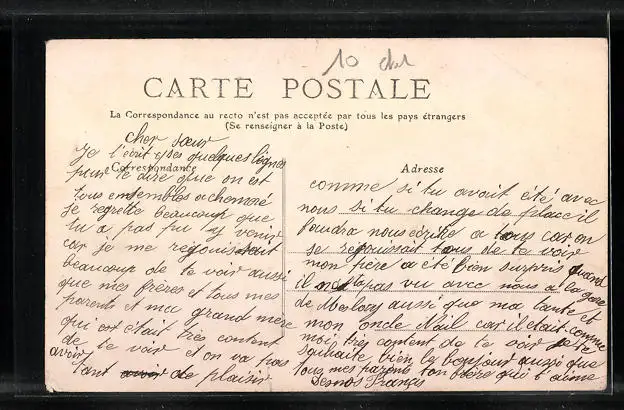 10
CARTE POSTALE
La Correspondance au recto n'est pas acceptée par tous les pays étrangers
(Se renseigner à la Poste)
Correspondance
Adresse
cher sœur
Je t'écrit ses quelques lignes
pour te dire que on est
tous ensembles
je regrette beaucoup que
tu a pas pu y venir
car je me
beaucoup de te voir aussi
que mes frères et tous mes
parents et ma grand mère
qui est était très content
de te voir et on va pas
avoir
tant de plaisir
comme si tu avait été avec
nous si tu change de place il
faudra nous écrire a tous car on
se tous de te voir
mon père a été bien surpris quand
il pas vu avec nous a la gare
de aussi que ma tante et
mon oncle car il était comme
moi très content de te voir je te
souhaite bien le bonjour aussi que
tous mes parents ton frère qui t'aime
Desnos François